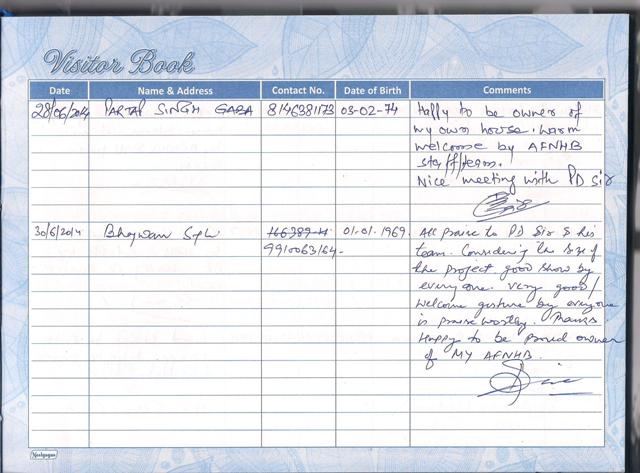 Visitor Book
Date Name & Address Contact No. Date of Birth Comments
28/06/2014 PARTAP SINGH GABA 8146381173 03-02-74 Happy to be owner of
my own house. warm
welcome by AFNHB
staff/team.
Nice meeting with PD Sir
30/6/2014 Bhagwan 01.01.1969. All praise to PD Sir & his
9910063164- team. Considering the size of
the project good show by
every one. very good/
welcome gesture by everyone
is praise worthy. Thanks
Happy to be proud owner
of MY AFNHB.
Neelgagan